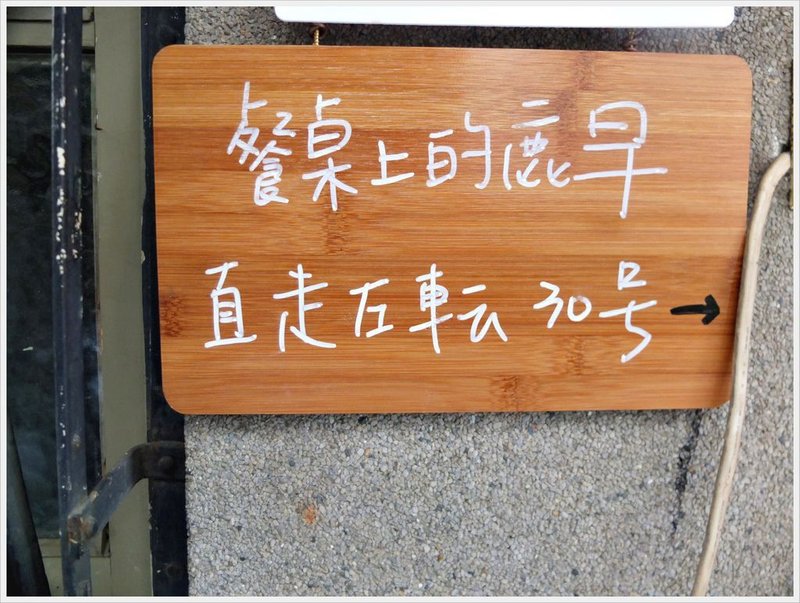 餐桌上的鹿早
直走左転30号→